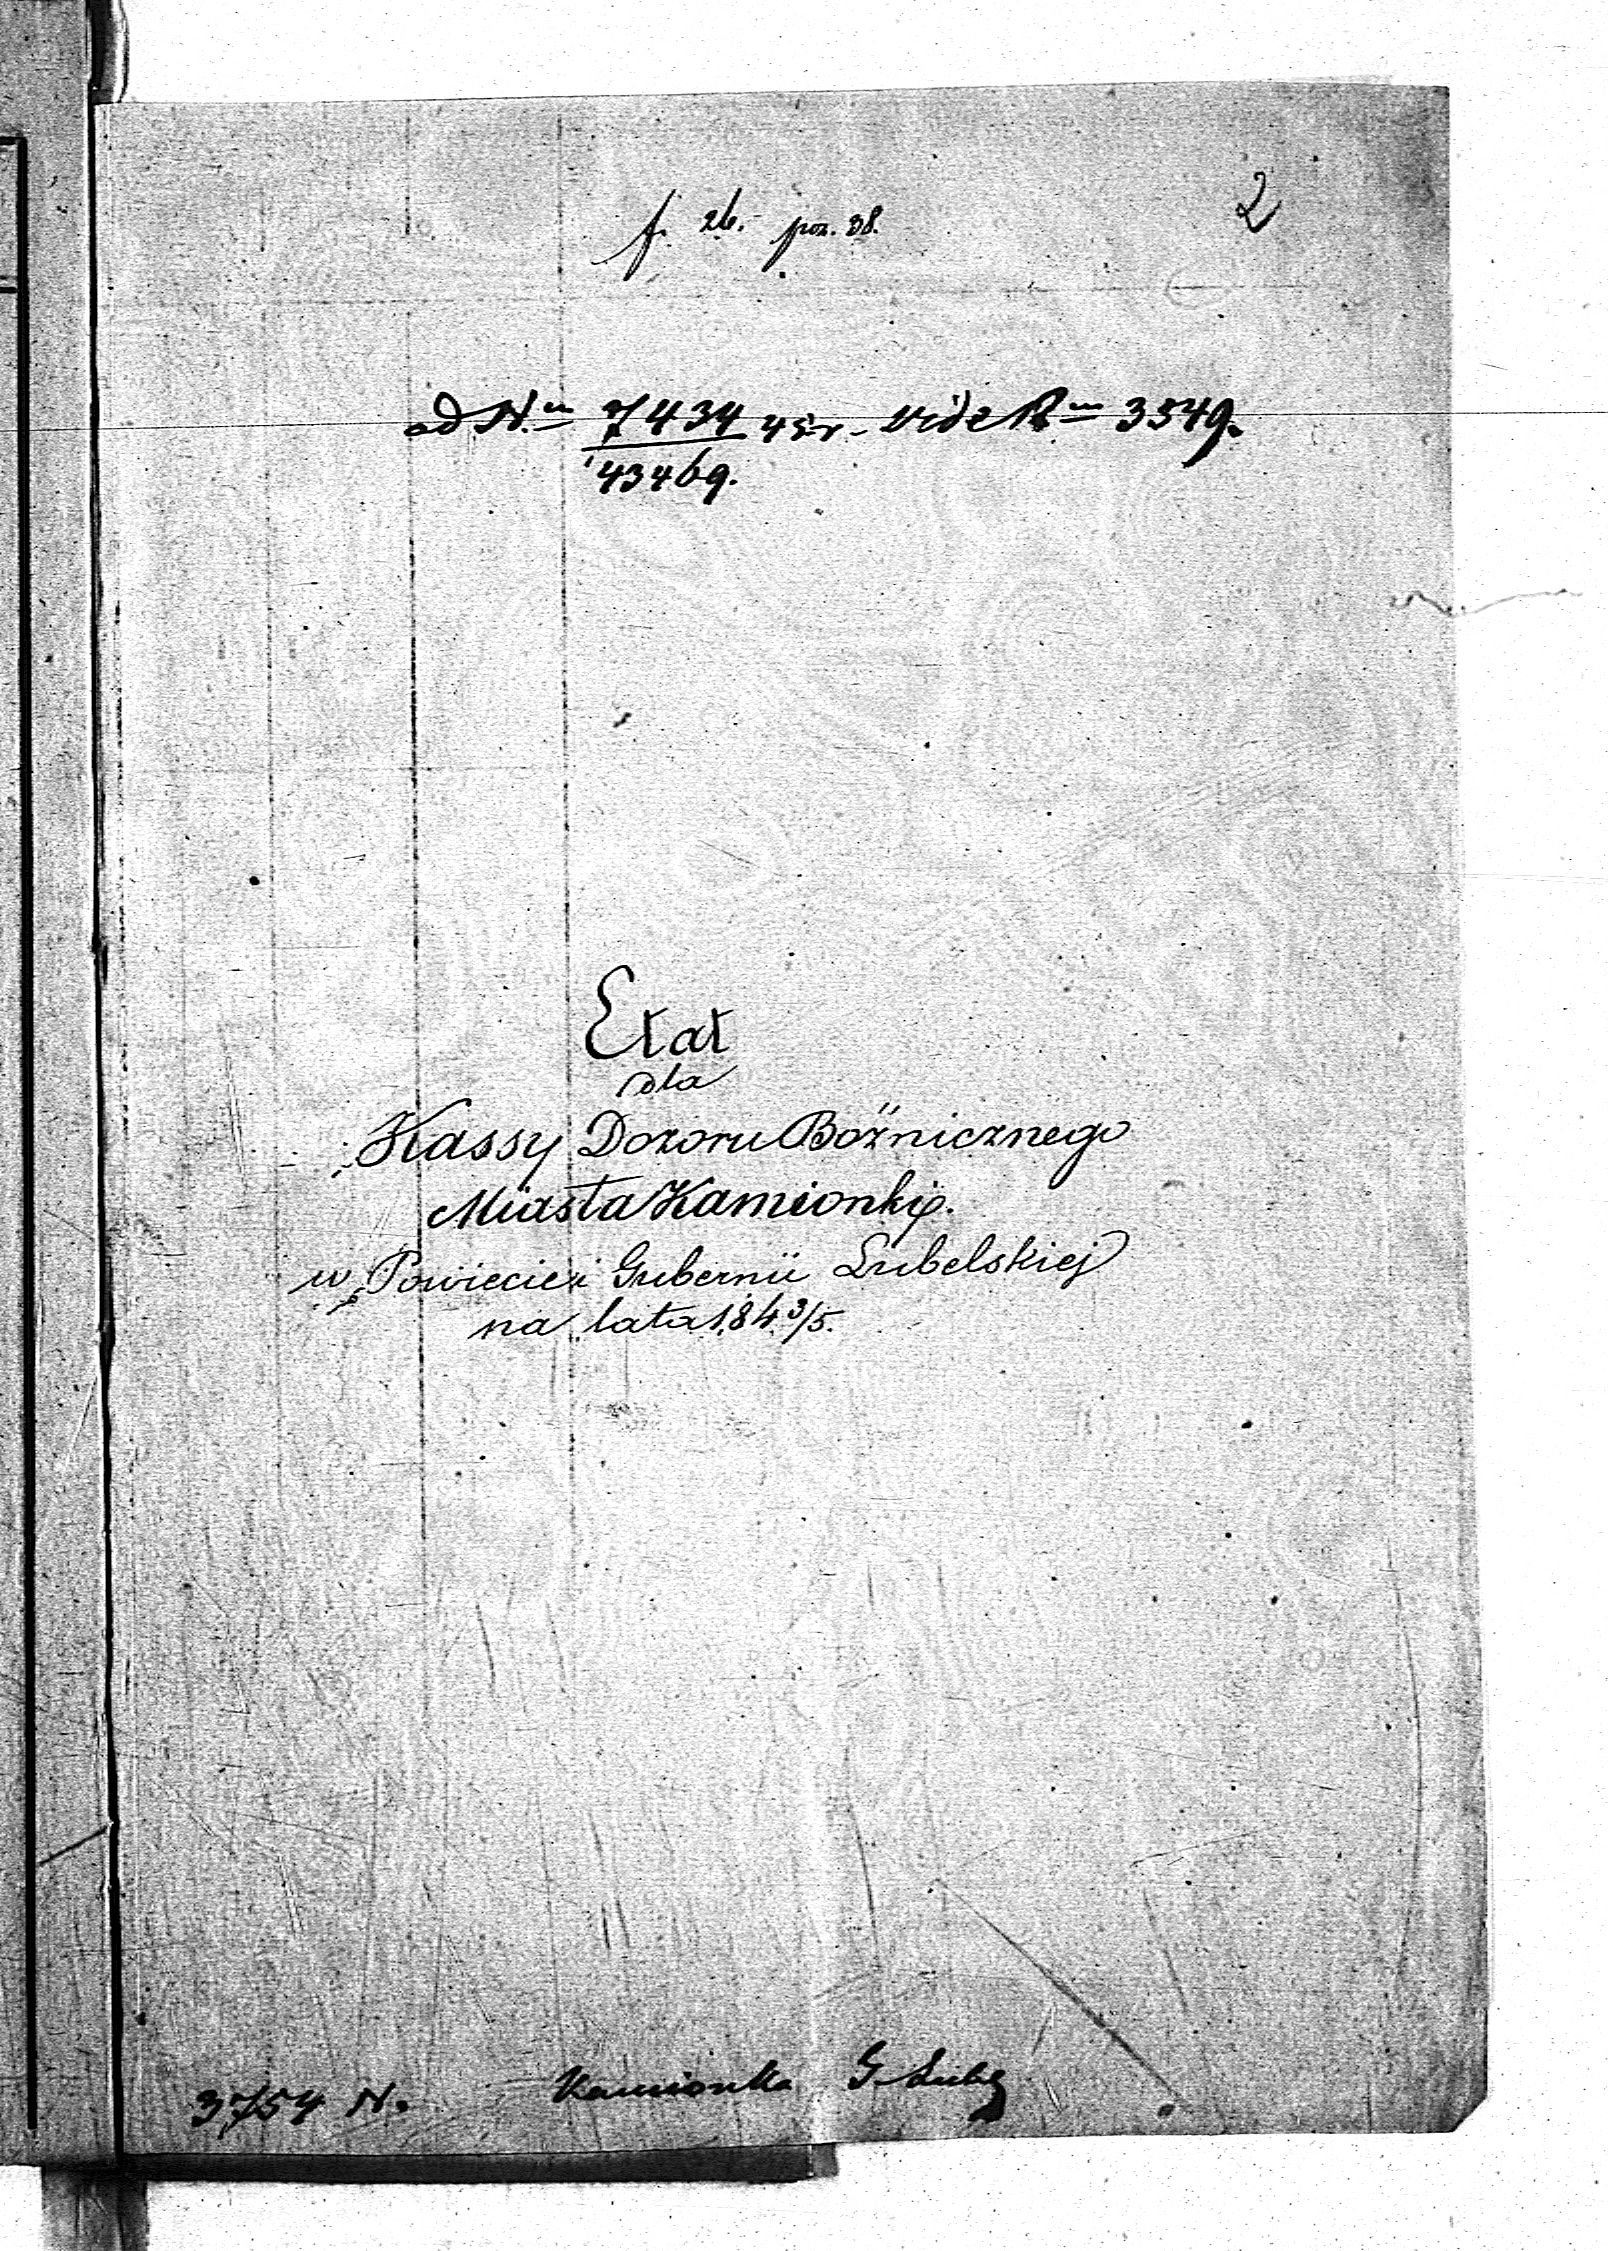 2
f. 26. poz. 38.
ad N. 7434 45 r. vide N. 3549.
43469.
Etat
dla
Kassy Dozoru Bóźnicznego
Miasta Kamionki.
w Powiecie i Gubernii Lubelskiej
na lata 184 3/5.
3754 N. Kamionka G. Lub